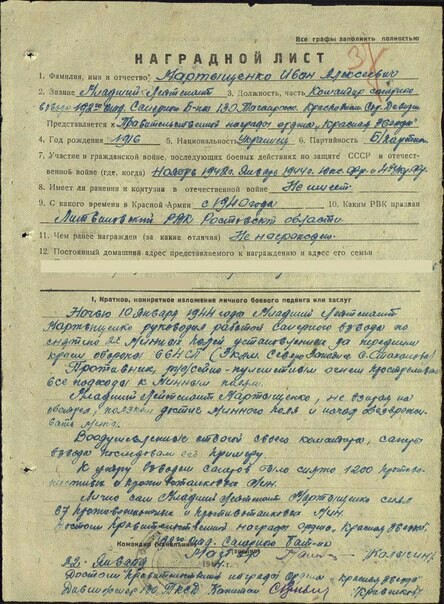 Все графы заполнить полностью
НАГРАДНОЙ ЛИСТ
1. Фамилия, имя и отчество Мартыщенко Иван Алексеевич
2. Звание Младший Лейтенант 3. Должность, часть Командир саперного
взвода отд. Саперного Б-на 130 Таганрог. Краснознам. Стр. Дивизии
Представляется к Правительственной награде ордена „Красная Звезда"
4. Год рождения 1916 5. Национальность Украинец 6. Партийность Б/партийн
7. Участие в гражданской войне, последующих боевых действиях по защите СССР и отечест-
венной войне (где, когда) Январь 1944г.
8. Имеет ли ранения и контузии в отечественной войне Не имеет
9. С какого времени в Красной Армии с 1940 года 10. Каким РВК призван
РВК Ростовской области
11. Чем ранее награжден (за какие отличия) Не награжден
12. Постоянный домашний адрес представляемого к награждению и адрес его семьи
I. Краткое, конкретное изложение личного боевого подвига или заслуг
Ночью 10 Января 1944 года Младший Лейтенант
Мартыщенко руководил работой саперного взвода по
снятию 22 минных полей установленных за передним
краем обороны 664 СП
Противник, пулеметным огнем простреливал
все подходы к минным полям.
Младший Лейтенант Мартыщенко, не взирая на
поля и начал обезврежи-
вать мины.
Воодушевленные отвагой своего командира, саперы
взвода последовали его примеру.
К утру взводом саперов было снято 1200 противо-
и противотанковых мин.
Лично сам Младший Лейтенант Мартыщенко снял
87 противопехотных и противотанковых мин.
Достоин Правительственной награды ордена „Красная Звезда".
Командир отд. Саперного Бат-на
22. Января 1944 г.
Достоин Правительственной награды ордена „Красная Звезда"
130 ТКСД Капитан